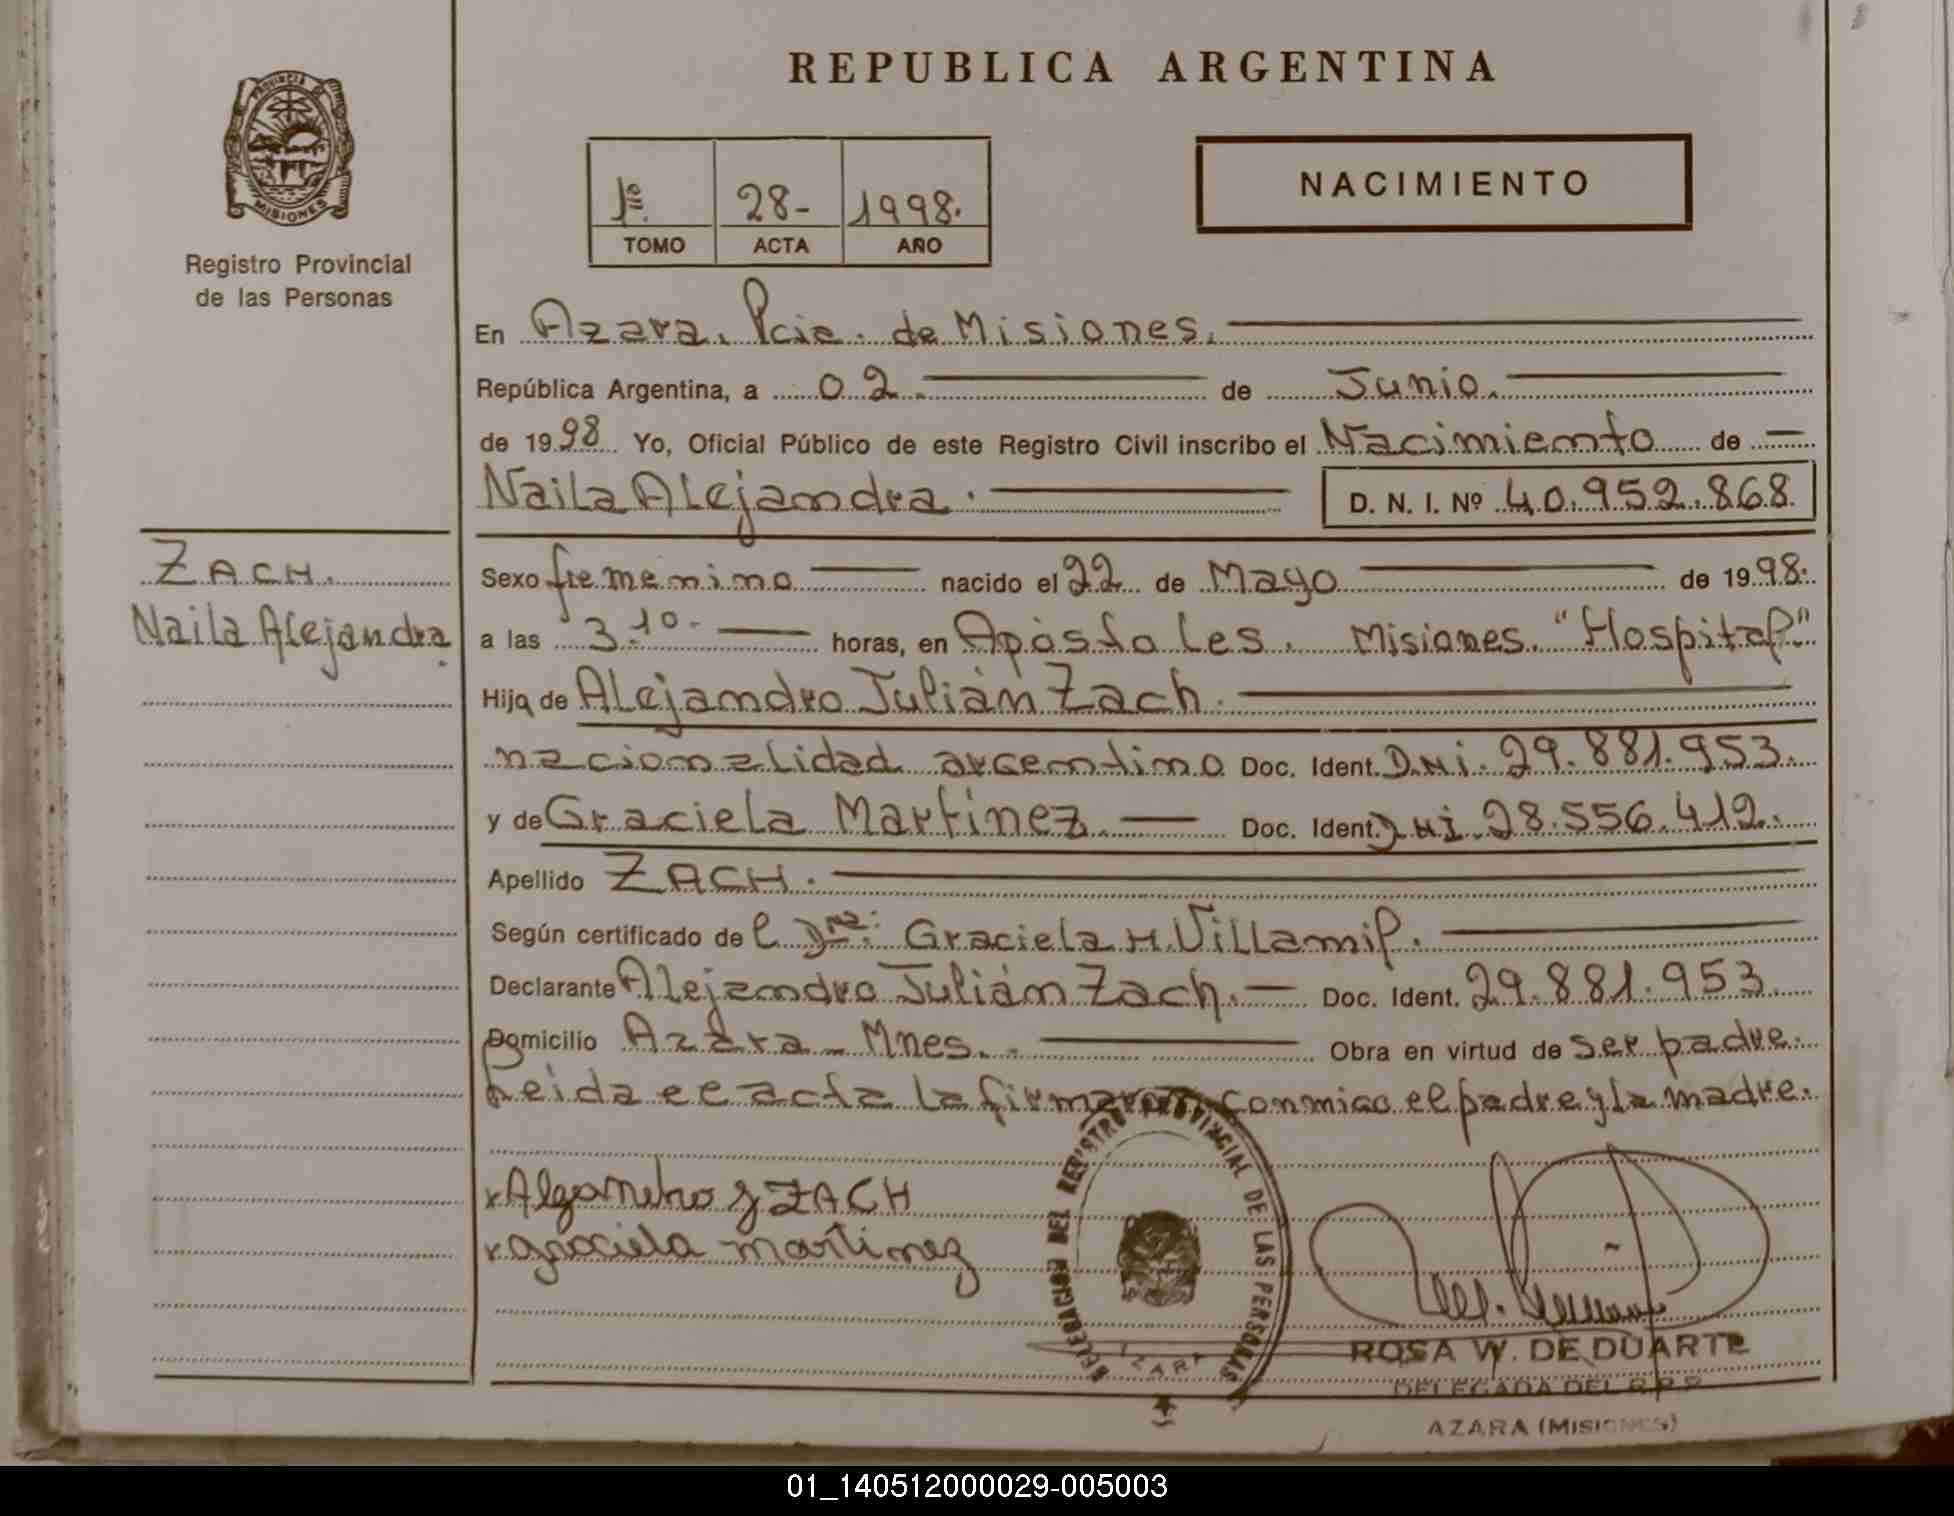 REPUBLICA ARGENTINA
PROVINCIA DE
MISIONES
Registro Provincial
de las Personas
1er. 28- 1998.
TOMO ACTA AÑO
NACIMIENTO
En Azara. Pcia. de Misiones.
República Argentina, a 02. de Junio.
de 1998 Yo, Oficial Público de este Registro Civil inscribo el Nacimiento de
Naila Alejandra. D. N. I. Nº 40.952.868.
ZACH.
Naila Alejandra.
Sexo femenino nacido el 22 de Mayo de 1998.
a las 3.10.- horas, en Apóstoles. Misiones. "Hospital"
Hija de Alejandro Julián Zach.
nacionalidad argentino Doc. Ident. DNi. 29.881.953.
y de Graciela Martínez. Doc. Ident. DNi. 28.556.412.
Apellido ZACH.
Según certificado de l Dra: Graciela H. Villamil.
Declarante Alejandro Julián Zach. Doc. Ident. 29.881.953.
Domicilio Azara - Mnes. Obra en virtud de ser padre.
Leida el acta la firmaron conmigo el padre y la madre.
x Alejandro J ZACH
x graciela martinez
DELEGACION DEL REGISTRO PROVINCIAL DE LAS PERSONAS
AZARA
ROSA W. DE DUARTE
DELEGADA DEL R.P.P.
AZARA (MISIONES)
01_140512000029-005003